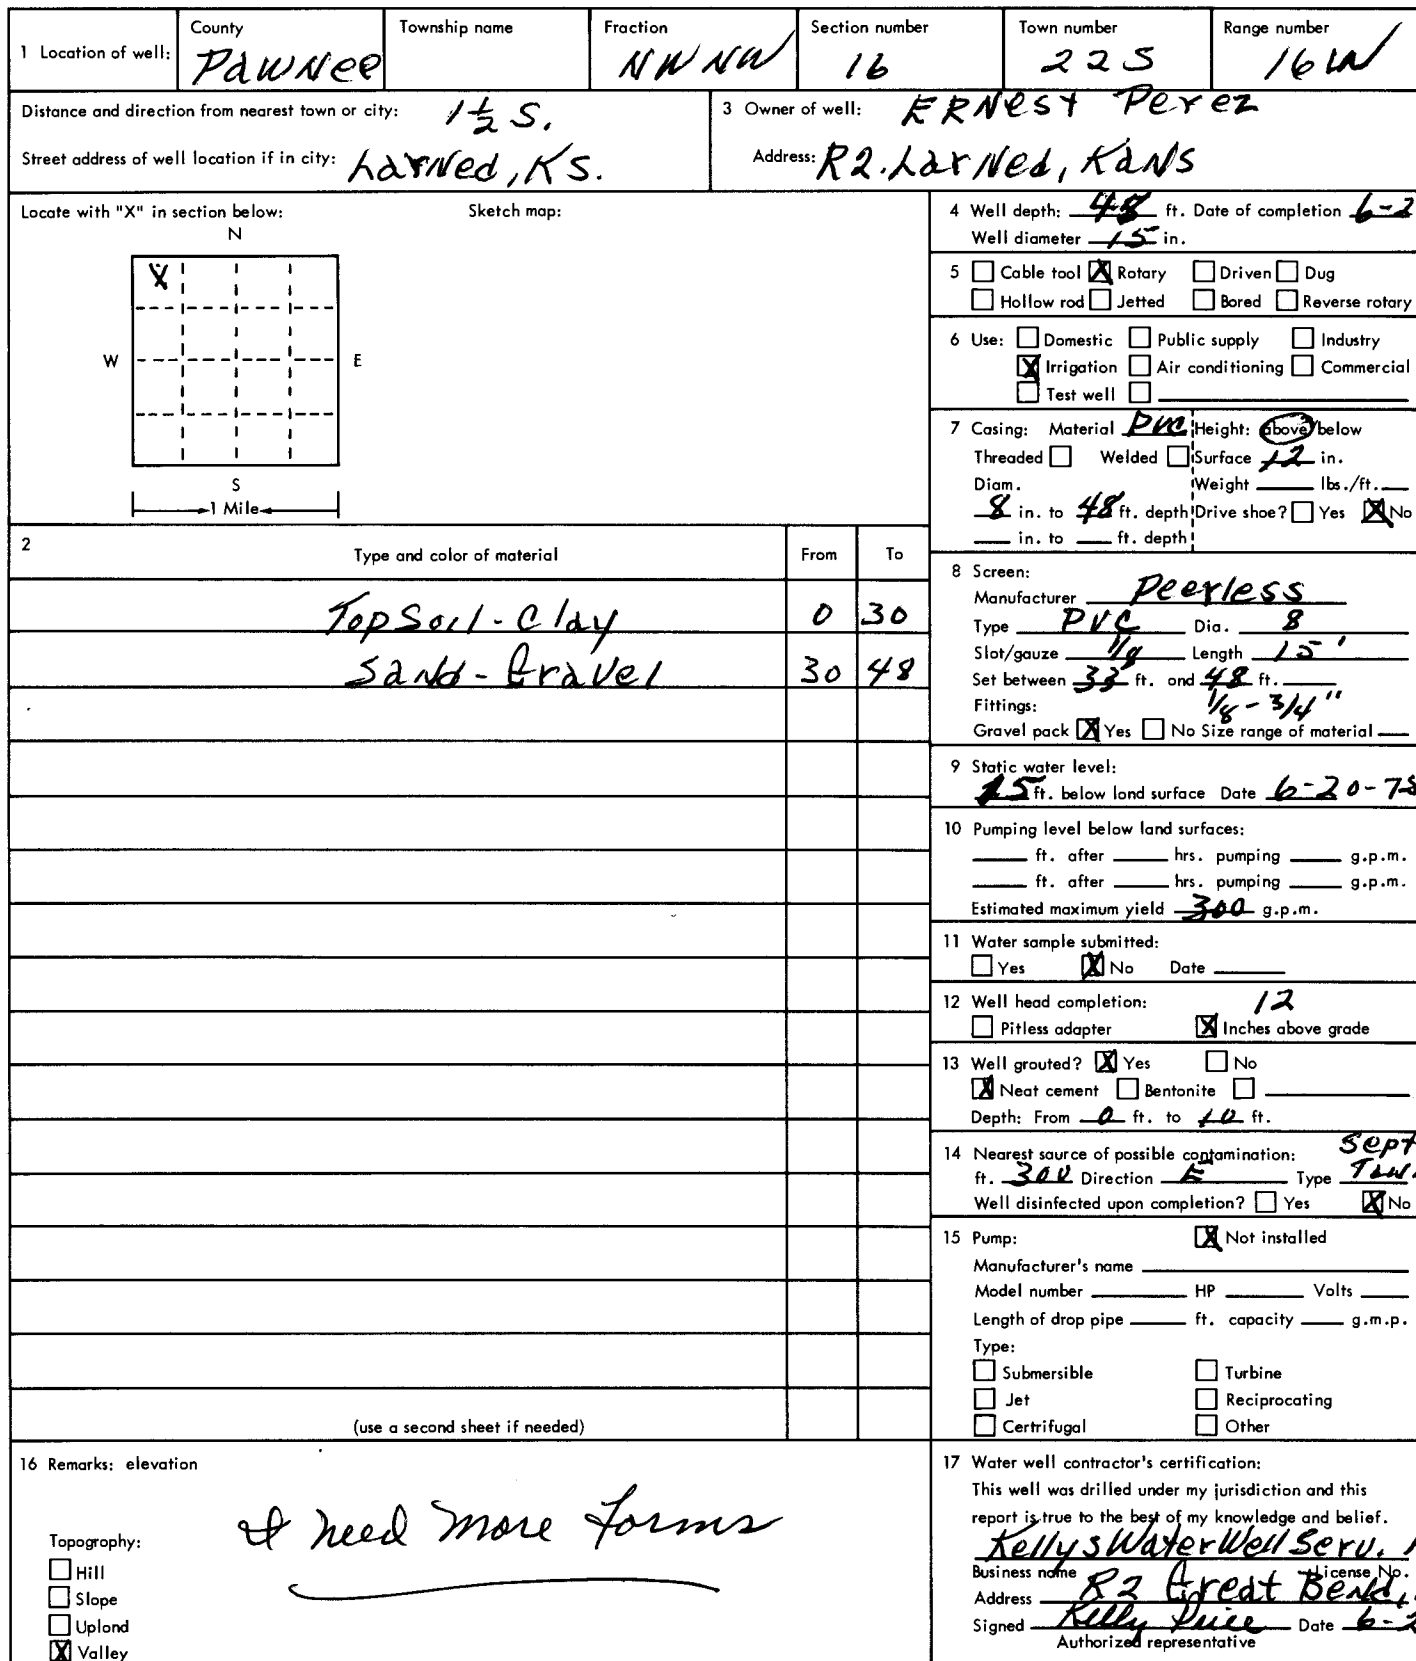 1 Location of well: County Township name Fraction Section number Town number Range number
Pawnee NW NW 16 22S 16W
Distance and direction from nearest town or city: 1 1/2 S.
Street address of well location if in city: Larned, KS.
3 Owner of well: Ernest Perez
Address: R2. Larned, Kans
Locate with "X" in section below: Sketch map:
N
X
W E
S
1 Mile
2 Type and color of material From To
Top Soil - Clay 0 30
Sand - Gravel 30 48
(use a second sheet if needed)
4 Well depth: 48 ft. Date of completion 6-2
Well diameter 15 in.
5 Cable tool X Rotary Driven Dug
Hollow rod Jetted Bored Reverse rotary
6 Use: Domestic Public supply Industry
X Irrigation Air conditioning Commercial
Test well
7 Casing: Material PVC Height: above/below
Threaded Welded Surface 12 in.
Diam. Weight lbs./ft.
8 in. to 48 ft. depth Drive shoe? Yes X No
in. to ft. depth
8 Screen:
Manufacturer Peerless
Type PVC Dia. 8
Slot/gauze 1/8 Length 15'
Set between 33 ft. and 48 ft.
Fittings: 1/8 - 3/4"
Gravel pack X Yes No Size range of material
9 Static water level:
15 ft. below land surface Date 6-20-78
10 Pumping level below land surfaces:
ft. after hrs. pumping g.p.m.
ft. after hrs. pumping g.p.m.
Estimated maximum yield 300 g.p.m.
11 Water sample submitted:
Yes X No Date
12 Well head completion: 12
Pitless adapter X Inches above grade
13 Well grouted? X Yes No
X Neat cement Bentonite
Depth: From 0 ft. to 10 ft.
14 Nearest source of possible contamination: Sept
ft. 300 Direction E Type
Well disinfected upon completion? Yes X No
15 Pump: X Not installed
Manufacturer's name
Model number HP Volts
Length of drop pipe ft. capacity g.m.p.
Type:
Submersible Turbine
Jet Reciprocating
Certrifugal Other
16 Remarks: elevation
I need more forms
Topogrophy:
Hill
Slope
Uplond
X Valley
17 Water well contractor's certification:
This well was drilled under my jurisdiction and this
report is true to the best of my knowledge and belief.
Kellys Water Well Serv.
Business name License No.
Address R2 Great Bend,
Signed Kelly Price Date 6-2
Authorized representative